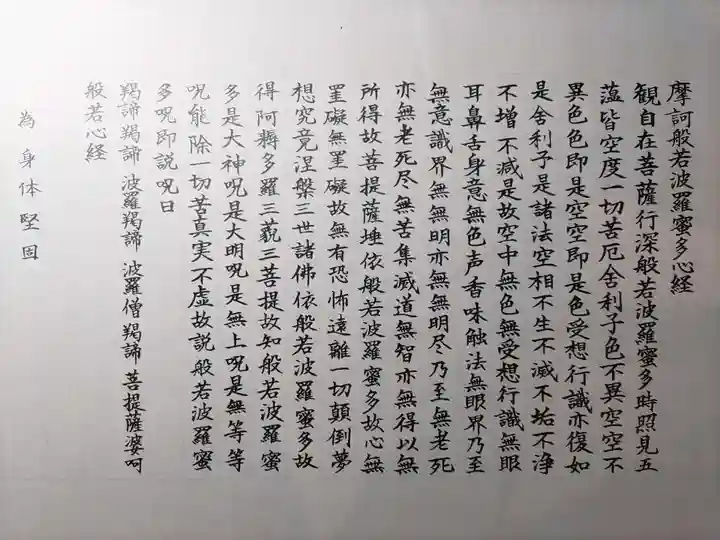 摩訶般若波羅蜜多心経
観自在菩薩行深般若波羅蜜多時照見五
薀皆空度一切苦厄舎利子色不異空空不
異色色即是空空即是色受想行識亦復如
是舎利子是諸法空相不生不滅不垢不浄
不増不減是故空中無色無受想行識無眼
耳鼻舌身意無色声香味触法無眼界乃至
無意識界無無明亦無無明尽乃至無老死
亦無老死尽無苦集滅道無智亦無得以無
所得故菩提薩埵依般若波羅蜜多故心無
罣礙無罣礙故無有恐怖遠離一切顛倒夢
想究竟涅槃三世諸佛依般若波羅蜜多故
得阿耨多羅三藐三菩提故知般若波羅蜜
多是大神呪是大明呪是無上呪是無等等
呪能除一切苦真実不虚故説般若波羅蜜
多呪即説呪曰
羯諦羯諦 波羅羯諦 波羅僧羯諦 菩提薩婆呵
般若心経
為身体堅固